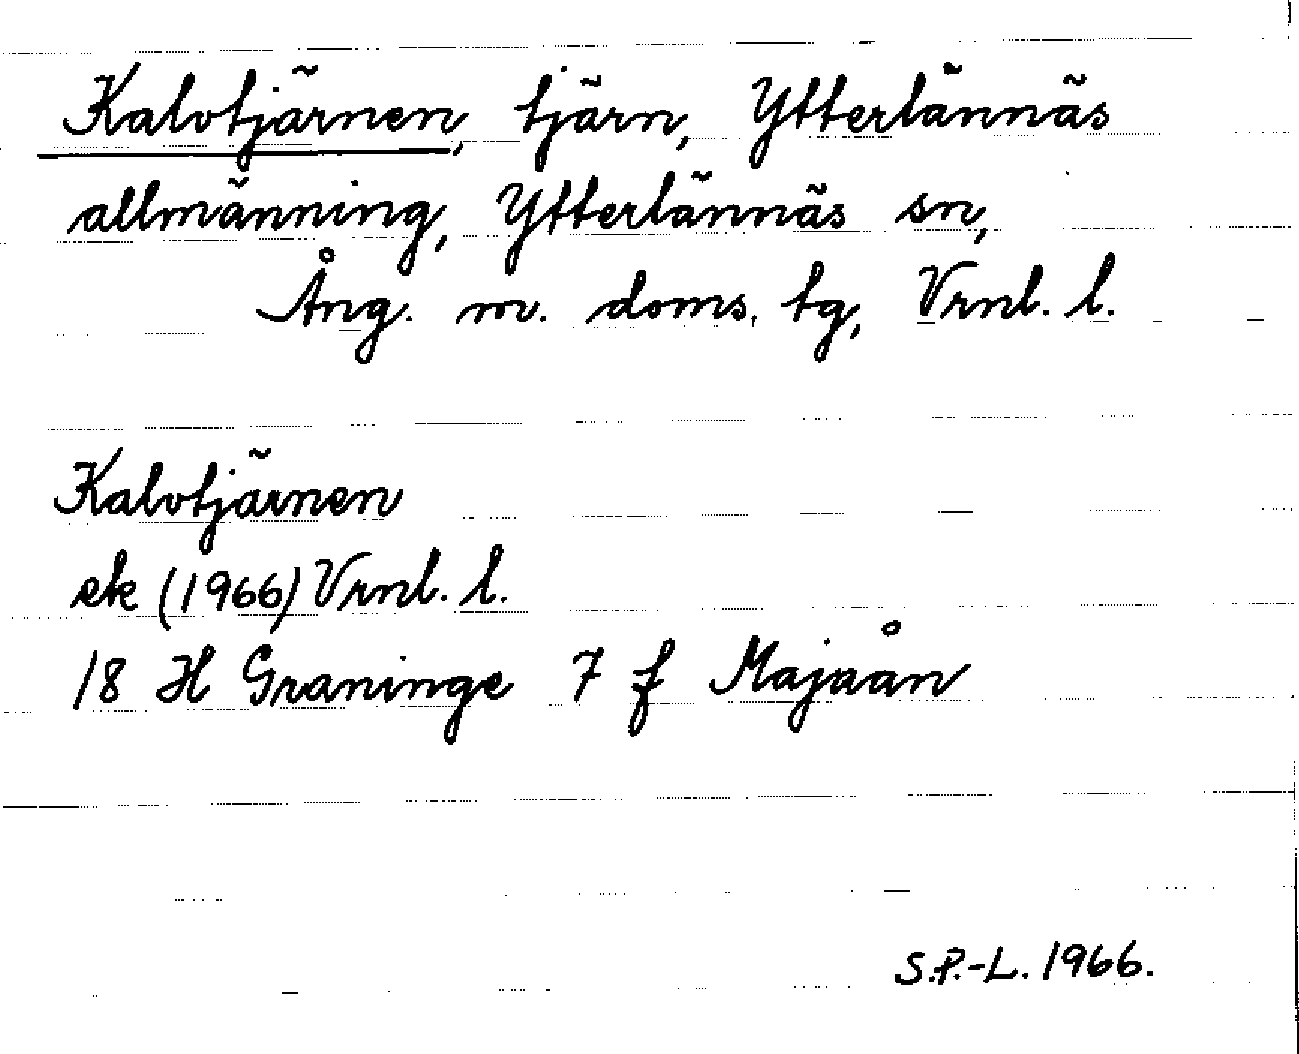 Kalvtjärnen, tjärn, Ytterlännäs
allmänning, Ytterlännäs sn,
Ång. m. doms. tg, Vrnl. l.
Kalvtjärnen
ek (1966) Vrnl. l.
18 H Graninge 7 f Majaån
S.P.-L. 1966.